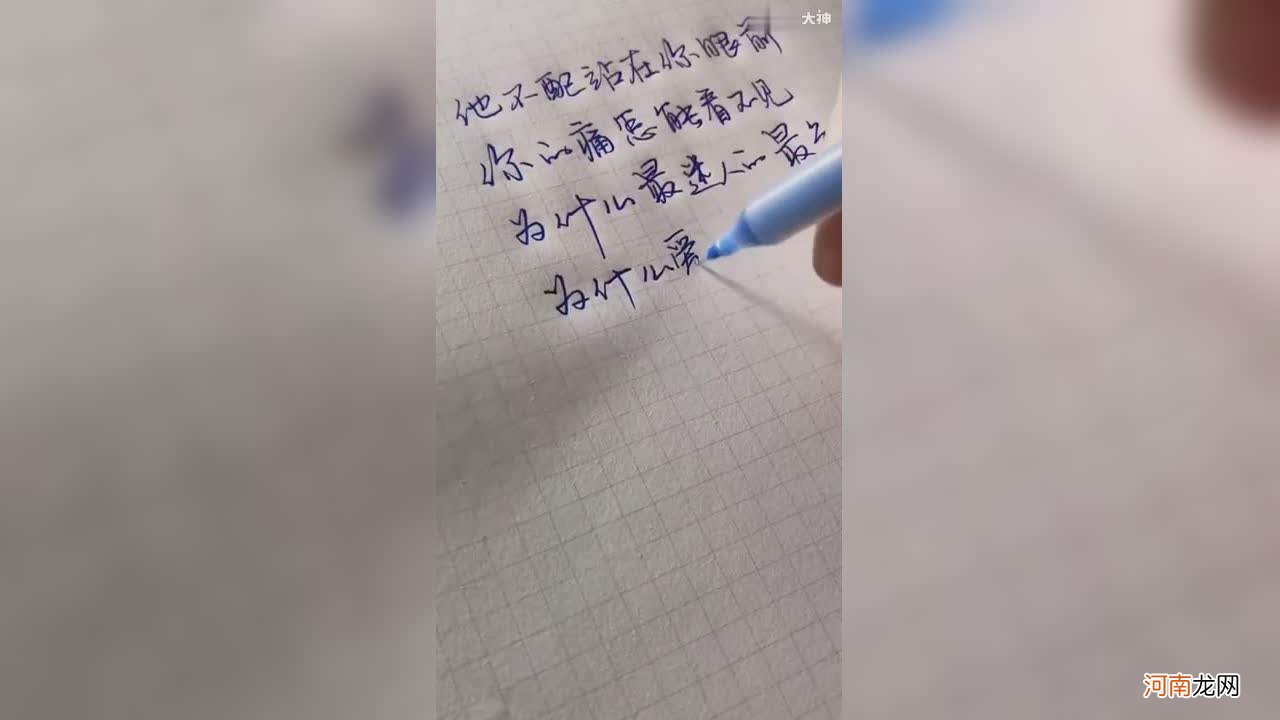 大神
他不配站在你眼前
你的痛怎能看不见
为什么最迷人的最
为什么爱
河南龙网